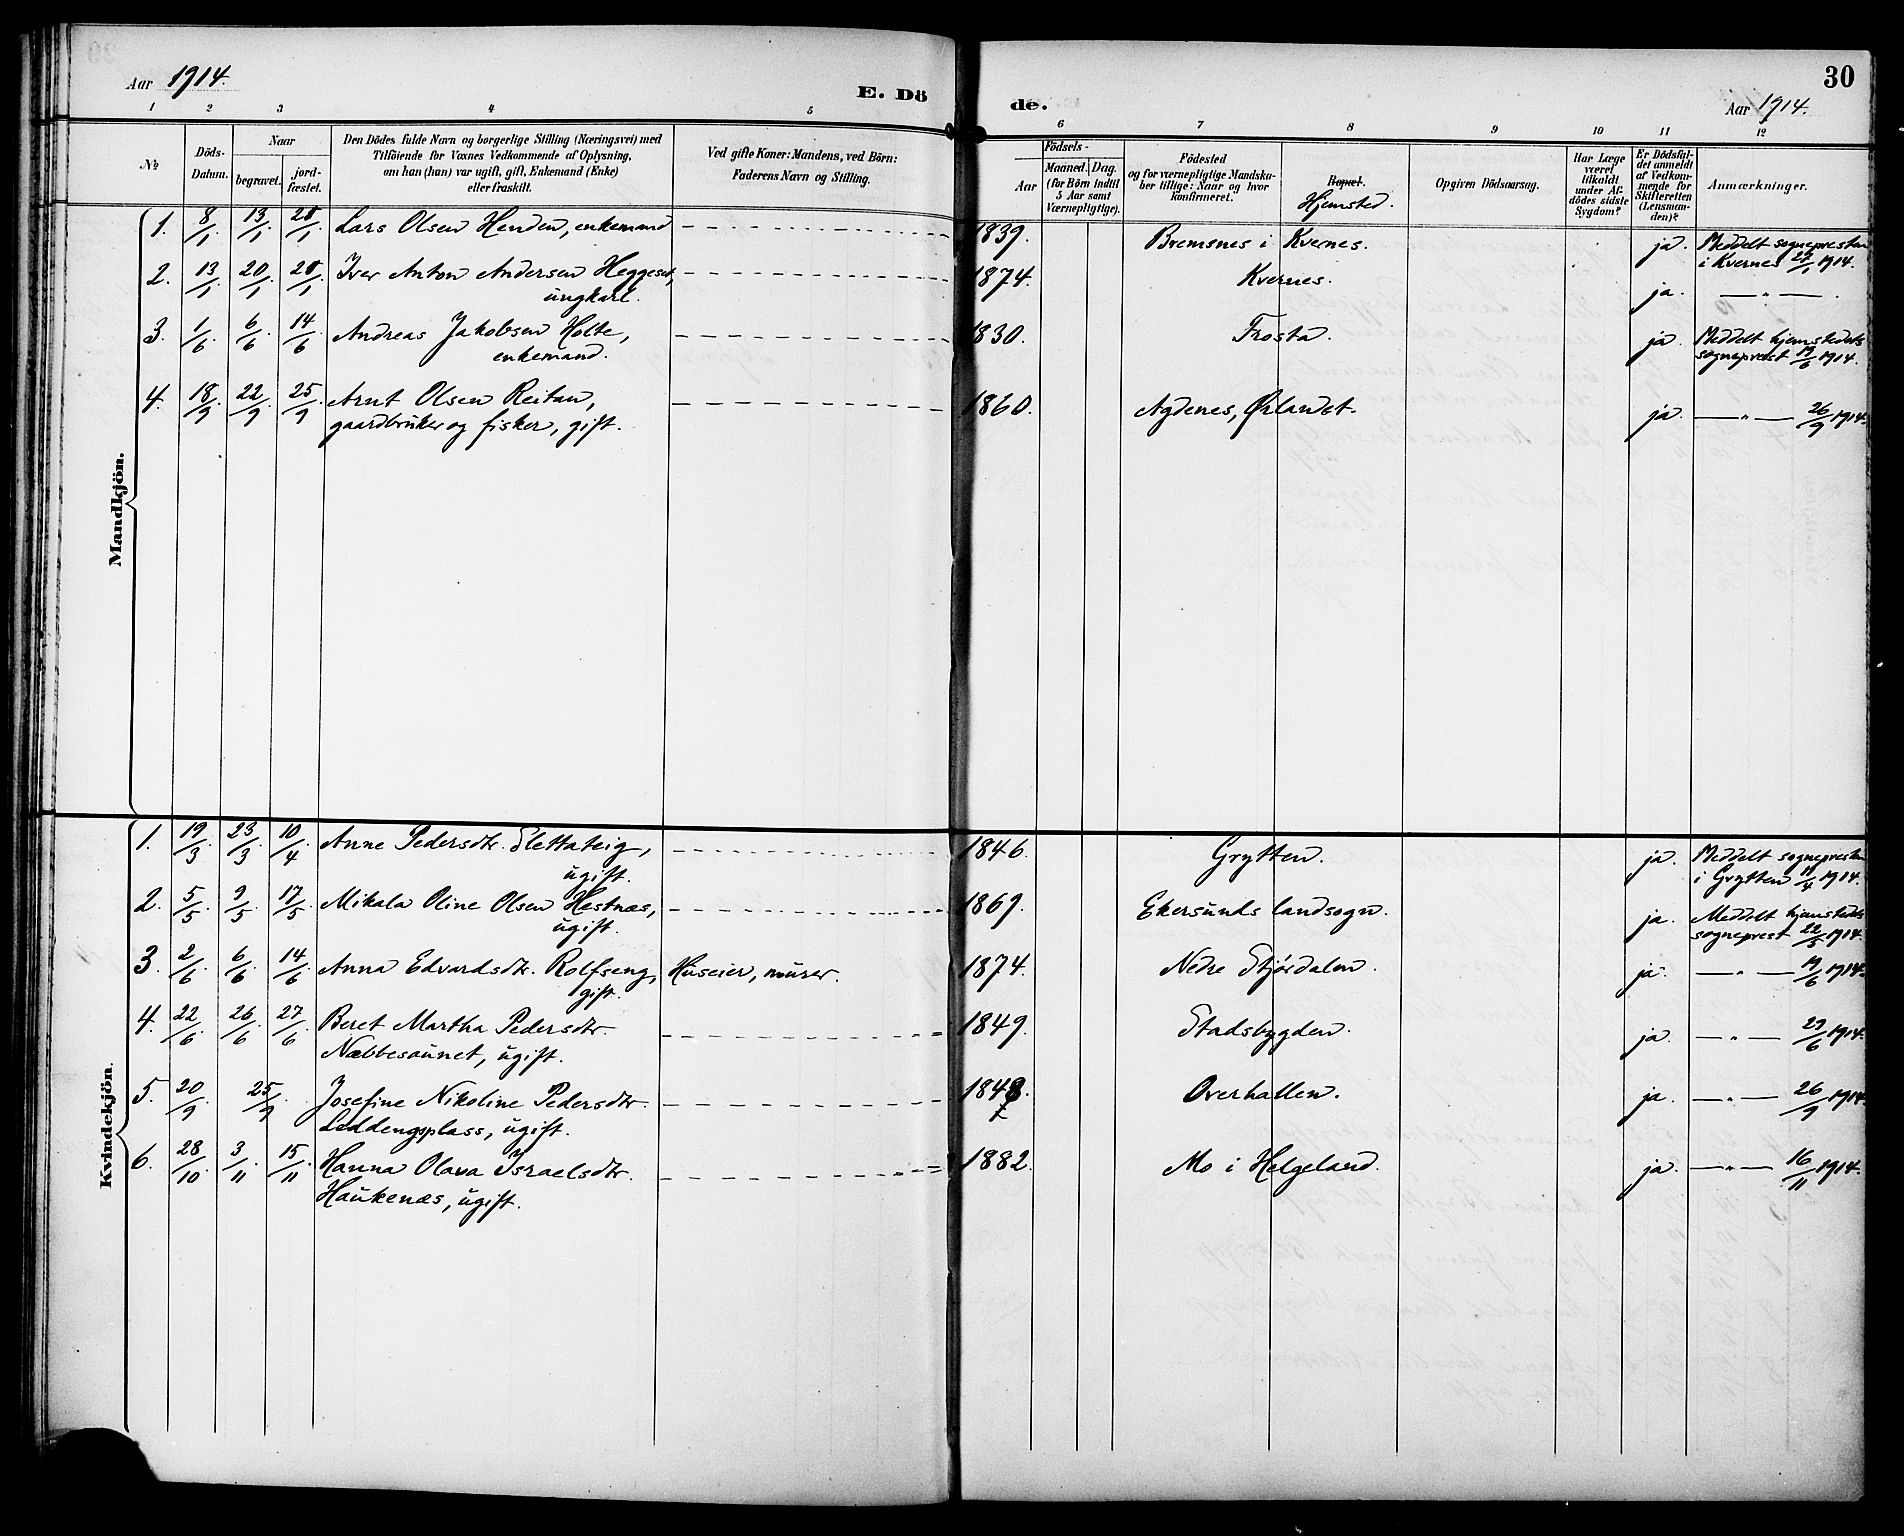 Aar 1914.
E. Dö
de.
30
Aar 1914.
1 2 3 4 5
6 7 8 9 10 11 12
No
Döds-
Datum.
Naar
begravet.
jord-
fæstet.
Den Dödes fulde Navn og borgerlige Stilling (Næringsvei) med
Tilföiende for Voxnes Vedkommende af Oplysning,
om han (hun) var ugift, gift, Enkemand (Enke)
eller fraskilt.
Ved gifte Koner: Mandens, ved Börn:
Faderens Navn og Stilling.
Födsels-
Aar
Maaned. Dag.
(for Börn indtil
5 Aar samt
Værnepligtige).
Födested
og for værnepligtige Mandska-
ber tillige: Naar og hvor
konfirmeret.
Bopæl.
Hjemsted.
Opgiven Dödsaarsag.
Har Læge
været
tilkaldt
under Af-
dödes sidste
Sygdom?
Er Dödsfal-
det anmeldt
af Vedkom-
mende for
Skifteretten
(Lensman-
den)?
Anmærkninger.
Mandkjön.
1. 8/1 13/1 /1 Lars Olsen Henden, enkemand 1839. Bremsnes i Kvernes. ja. Meddelt sognepresten
i Kvernes /1 1914.
2. 13/1 20/1 /1 Iver Anton Andersen Heggeset, 1874. Kvernes. ja. — " — .
ungkarl.
3. 1/6 6/6 14/6 Andreas Jakobsen Holte, 1830. Frosta. ja. Meddelt hjemstedets
enkemand. sogneprest 19/6 1914.
4. 18/9 22/9 25/9 Arnt Olsen Reitan, 1860. Agdenes, Ørlandet. ja. — " — 26/9 1914.
gaardbruker og fisker, gift.
Kvindekjön.
1. 19/3 23/3 10/4 Anne Pedersdtr. Slettateig, 1846. Grytten. ja. Meddelt sognepresten
ugift. i Grytten 11/4 1914.
2. 5/5 9/5 17/5 Mikala Oline Olsen Hestnæs, 1869. Ekersunds landsogn. ja. Meddelt hjemstedets
ugift. sogneprest 22/5 1914.
3. 2/6 6/6 14/6 Anna Edvardsdtr. Rolfseng, Huseier, murer. 1874. Nedre Stjørdalen. ja. — " — 19/6 1914.
gift.
4. 22/6 26/6 27/6 Beret Martha Pedersdtr. 1849. Stadsbygden. ja. — " — 29/6 1914.
Næbbesaunet, ugift.
5. 20/9 25/9 Josefine Nikoline Pedersdtr. 1848. Overhallen. ja. — " — 26/9 1914.
Leddengsplass, ugift.
6. 28/10. 3/11. 15/11 Hanna Olava Israelsdtr. 1882. Mo i Helgeland. ja. — " — 16/11 1914.
Haukenæs, ugift.